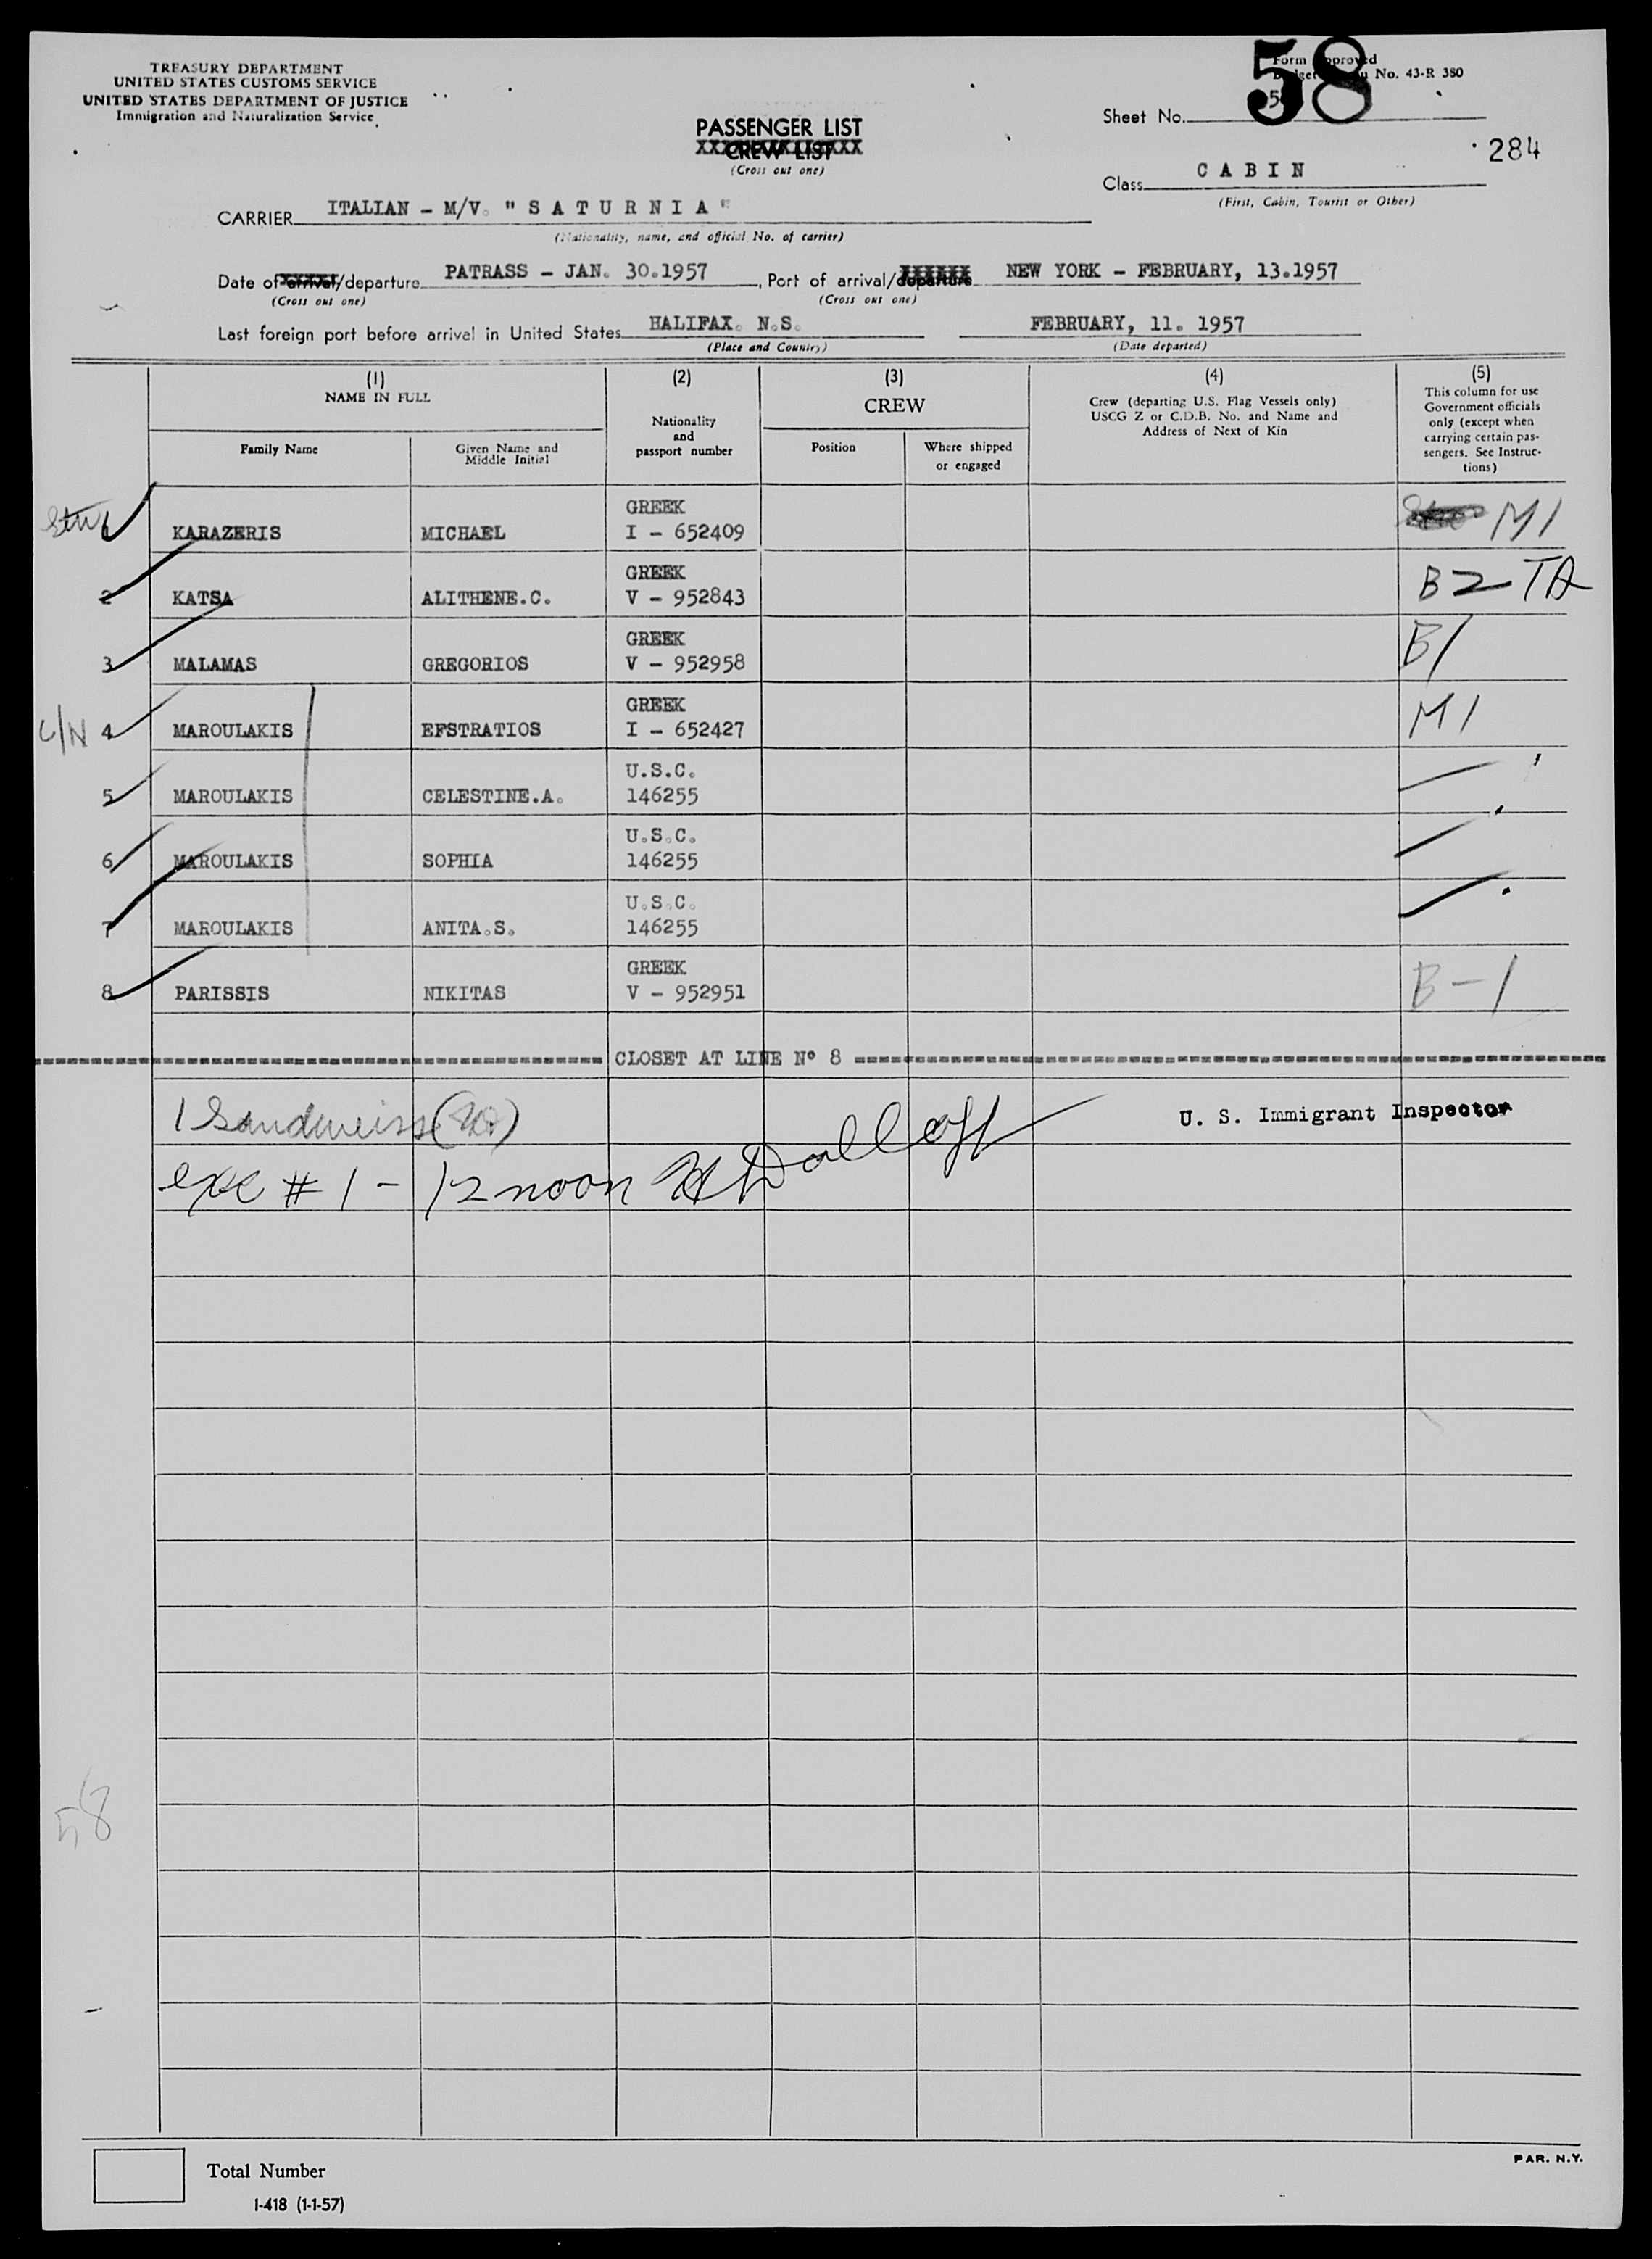 TREASURY DEPARTMENT
UNITED STATES CUSTOMS SERVICE
UNITED STATES DEPARTMENT OF JUSTICE
Immigration and Naturalization Service
58
Form Approved
No. 43-R 380
Sheet No.
284
PASSENGER LIST
CREW LIST
(Cross out one)
Class CABIN
(First, Cabin, Tourist or Other)
CARRIER ITALIAN - M/V. "SATURNIA"
(Nationality, name, and official No. of carrier)
Date of arrival/departure PATRASS - JAN. 30.1957, Port of arrival/departure NEW YORK - FEBRUARY, 13.1957
(Cross out one) (Cross out one)
Last foreign port before arrival in United States HALIFAX. N.S. FEBRUARY, 11. 1957
(Place and Country) (Date departed)
(1) NAME IN FULL
Family Name
Given Name and Middle Initial
(2) Nationality and passport number
(3) CREW
Position
Where shipped or engaged
(4) Crew (departing U.S. Flag Vessels only) USCG Z or C.D.B. No. and Name and Address of Next of Kin
(5) This column for use Government officials only (except when carrying certain passengers. See Instructions)
KARAZERIS MICHAEL GREEK I - 652409 M1
2 KATSA ALITHENE.C. GREEK V - 952843 B2 TA
3 MALAMAS GREGORIOS GREEK V - 952958 B1
C/N 4 MAROULAKIS EFSTRATIOS GREEK I - 652427 M1
5 MAROULAKIS CELESTINE.A. U.S.C. 146255
6 MAROULAKIS SOPHIA U.S.C. 146255
7 MAROULAKIS ANITA.S. U.S.C. 146255
8 PARISSIS NIKITAS GREEK V - 952951 B-1
CLOSET AT LINE Nº 8
1 Sandweiss
U. S. Immigrant Inspector
exc # 1 - 12 noon
58
Total Number
I-418 (1-1-57)
PAR. N.Y.